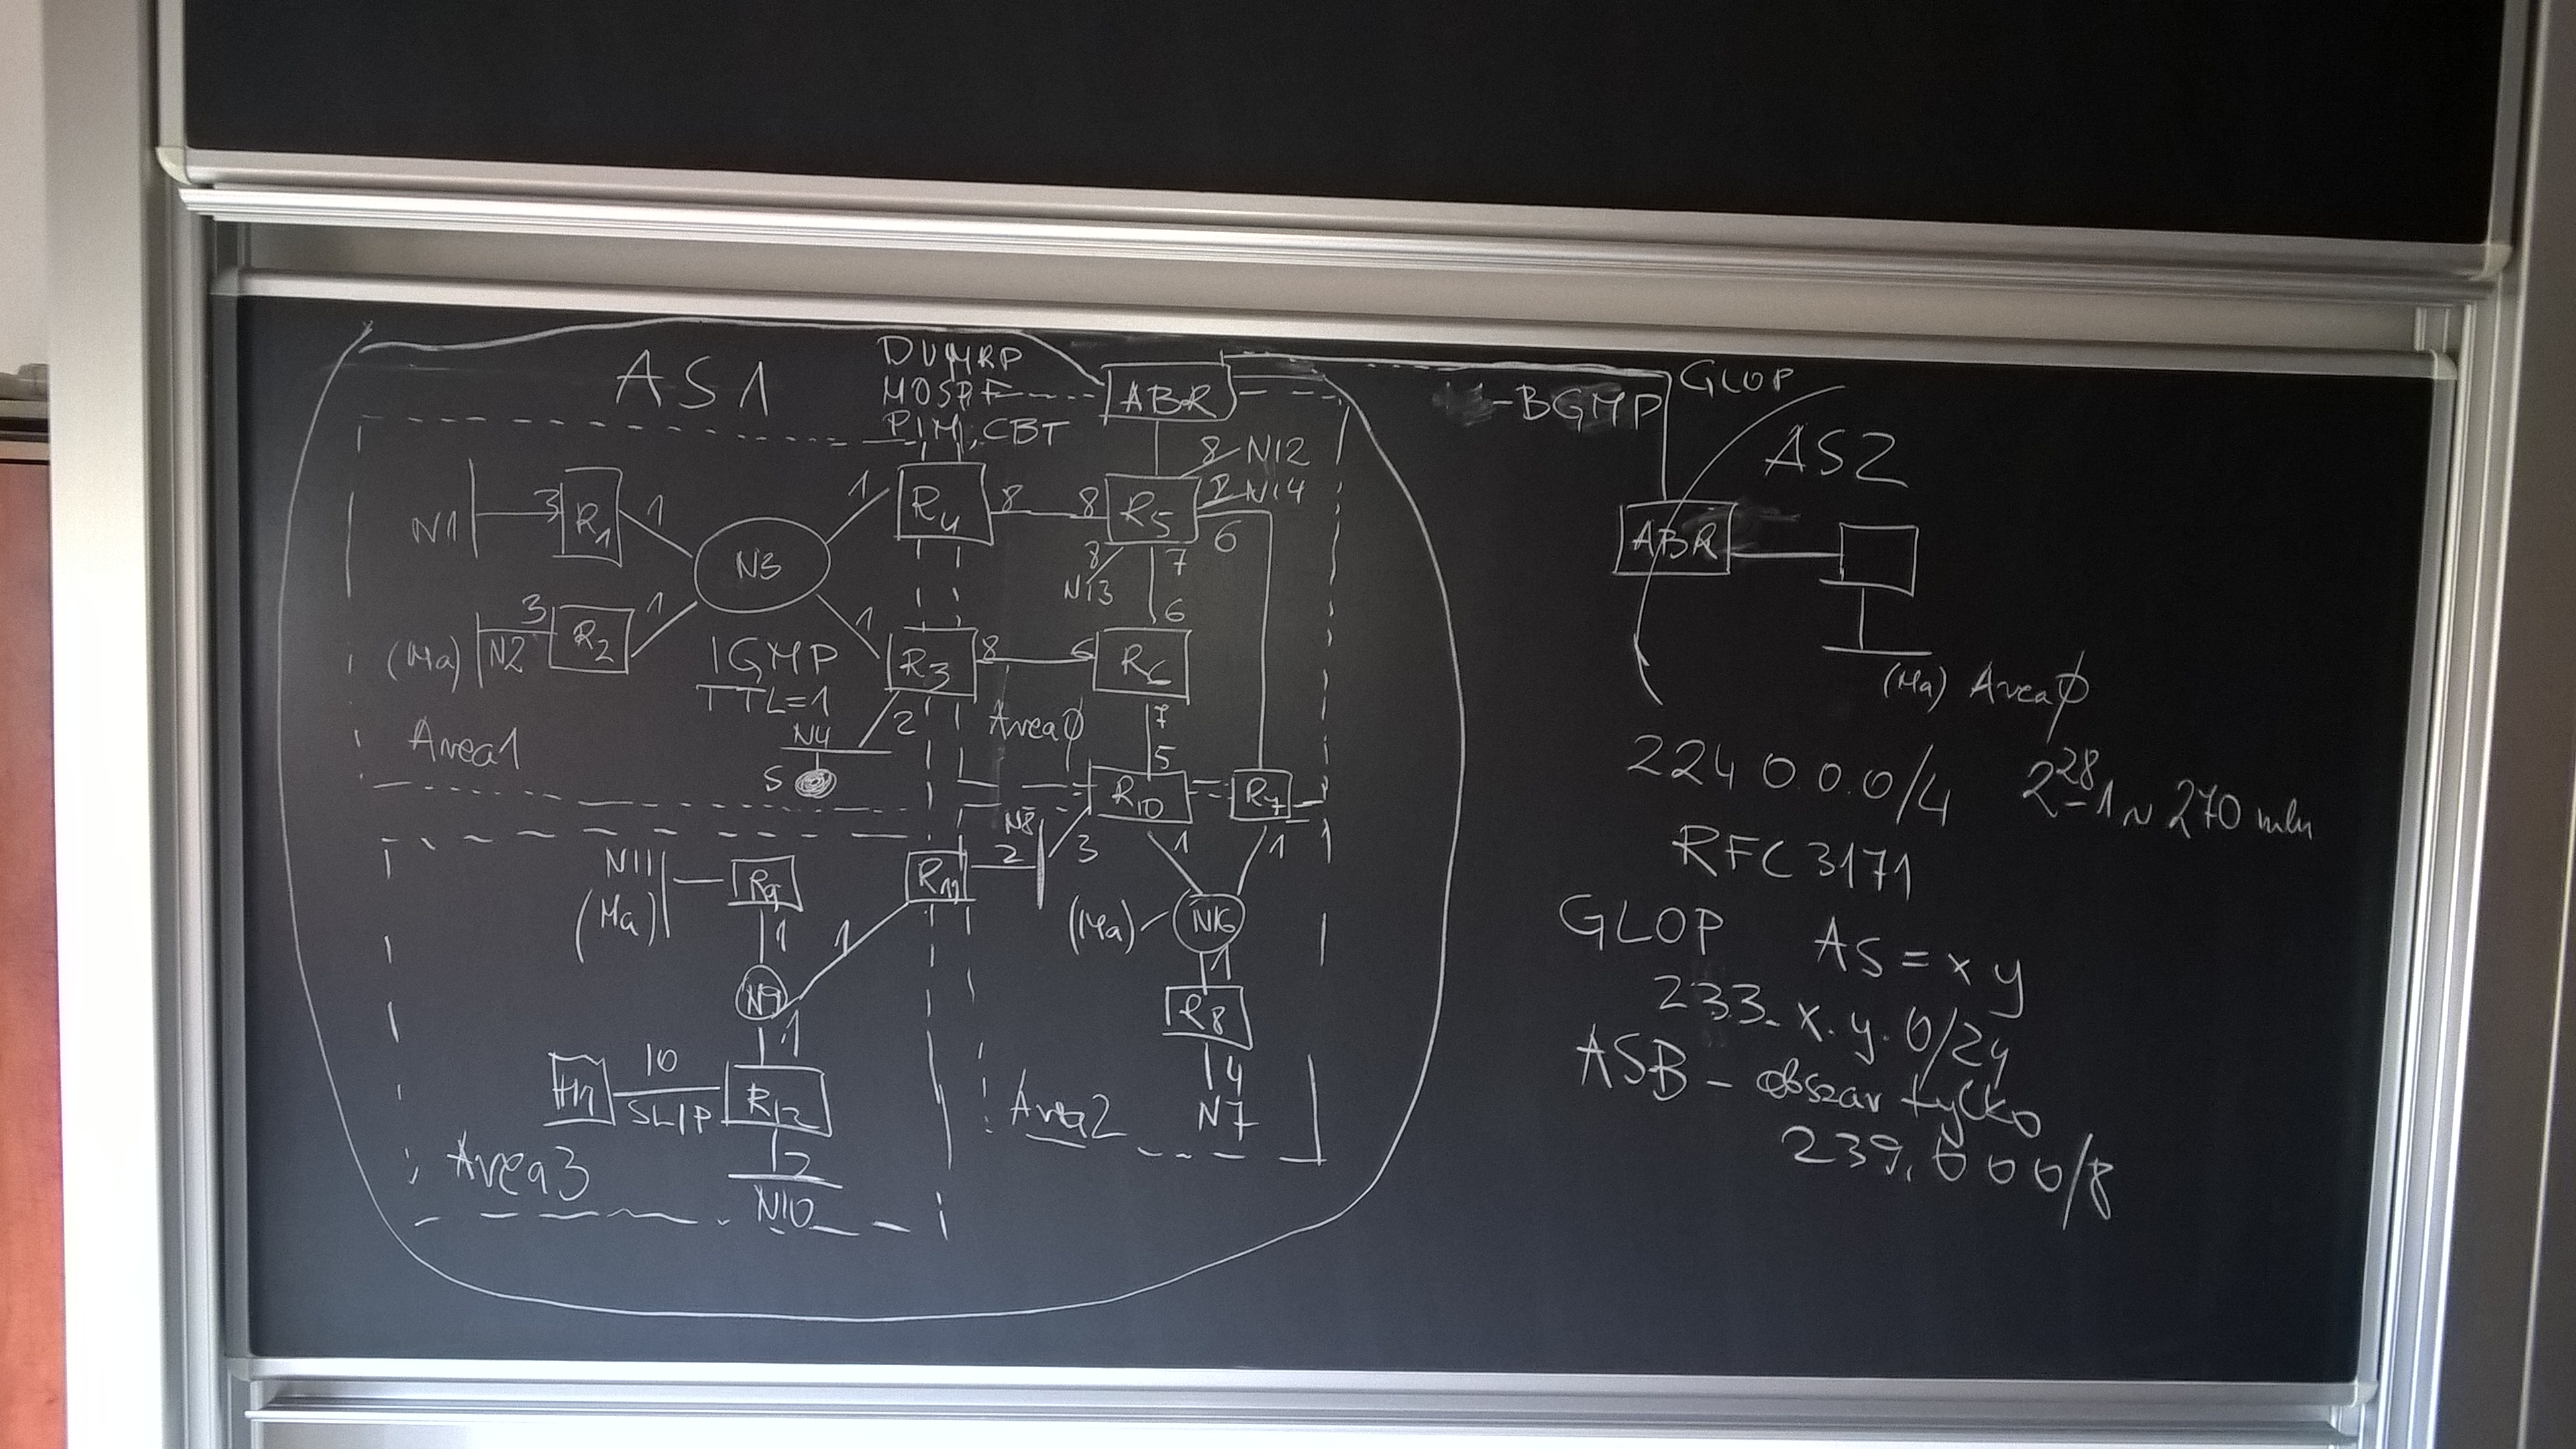 AS1
DVMRP
MOSPF
PIM, CBT
ABR
-BGMP
GLOP
AS2
8 N12
2 N14
N1 3 R1 1
1 R4 8 8 R5
6
N3
8 7
N13
ABR
(Ma) N2 3 R2 1
1
6
IGMP
TTL=1
R3 8 6 R6
2
N4
S
Area1
Area0
7
5
(Ma) Area0
R10
R7
224 0.0.0/4 2^28-1 ~ 270 mln
RFC 3171
N11
(Ma)
R9
R11
2
N8
3
1
1
1
1
(Ma)
N6
1
GLOP AS = x y
233.x.y.0/24
N9
1
R8
4
N7
ASB - obszar tylko
239.0 0 0/8
H1 10
SLIP
R12
2
N10
Area3
Area2